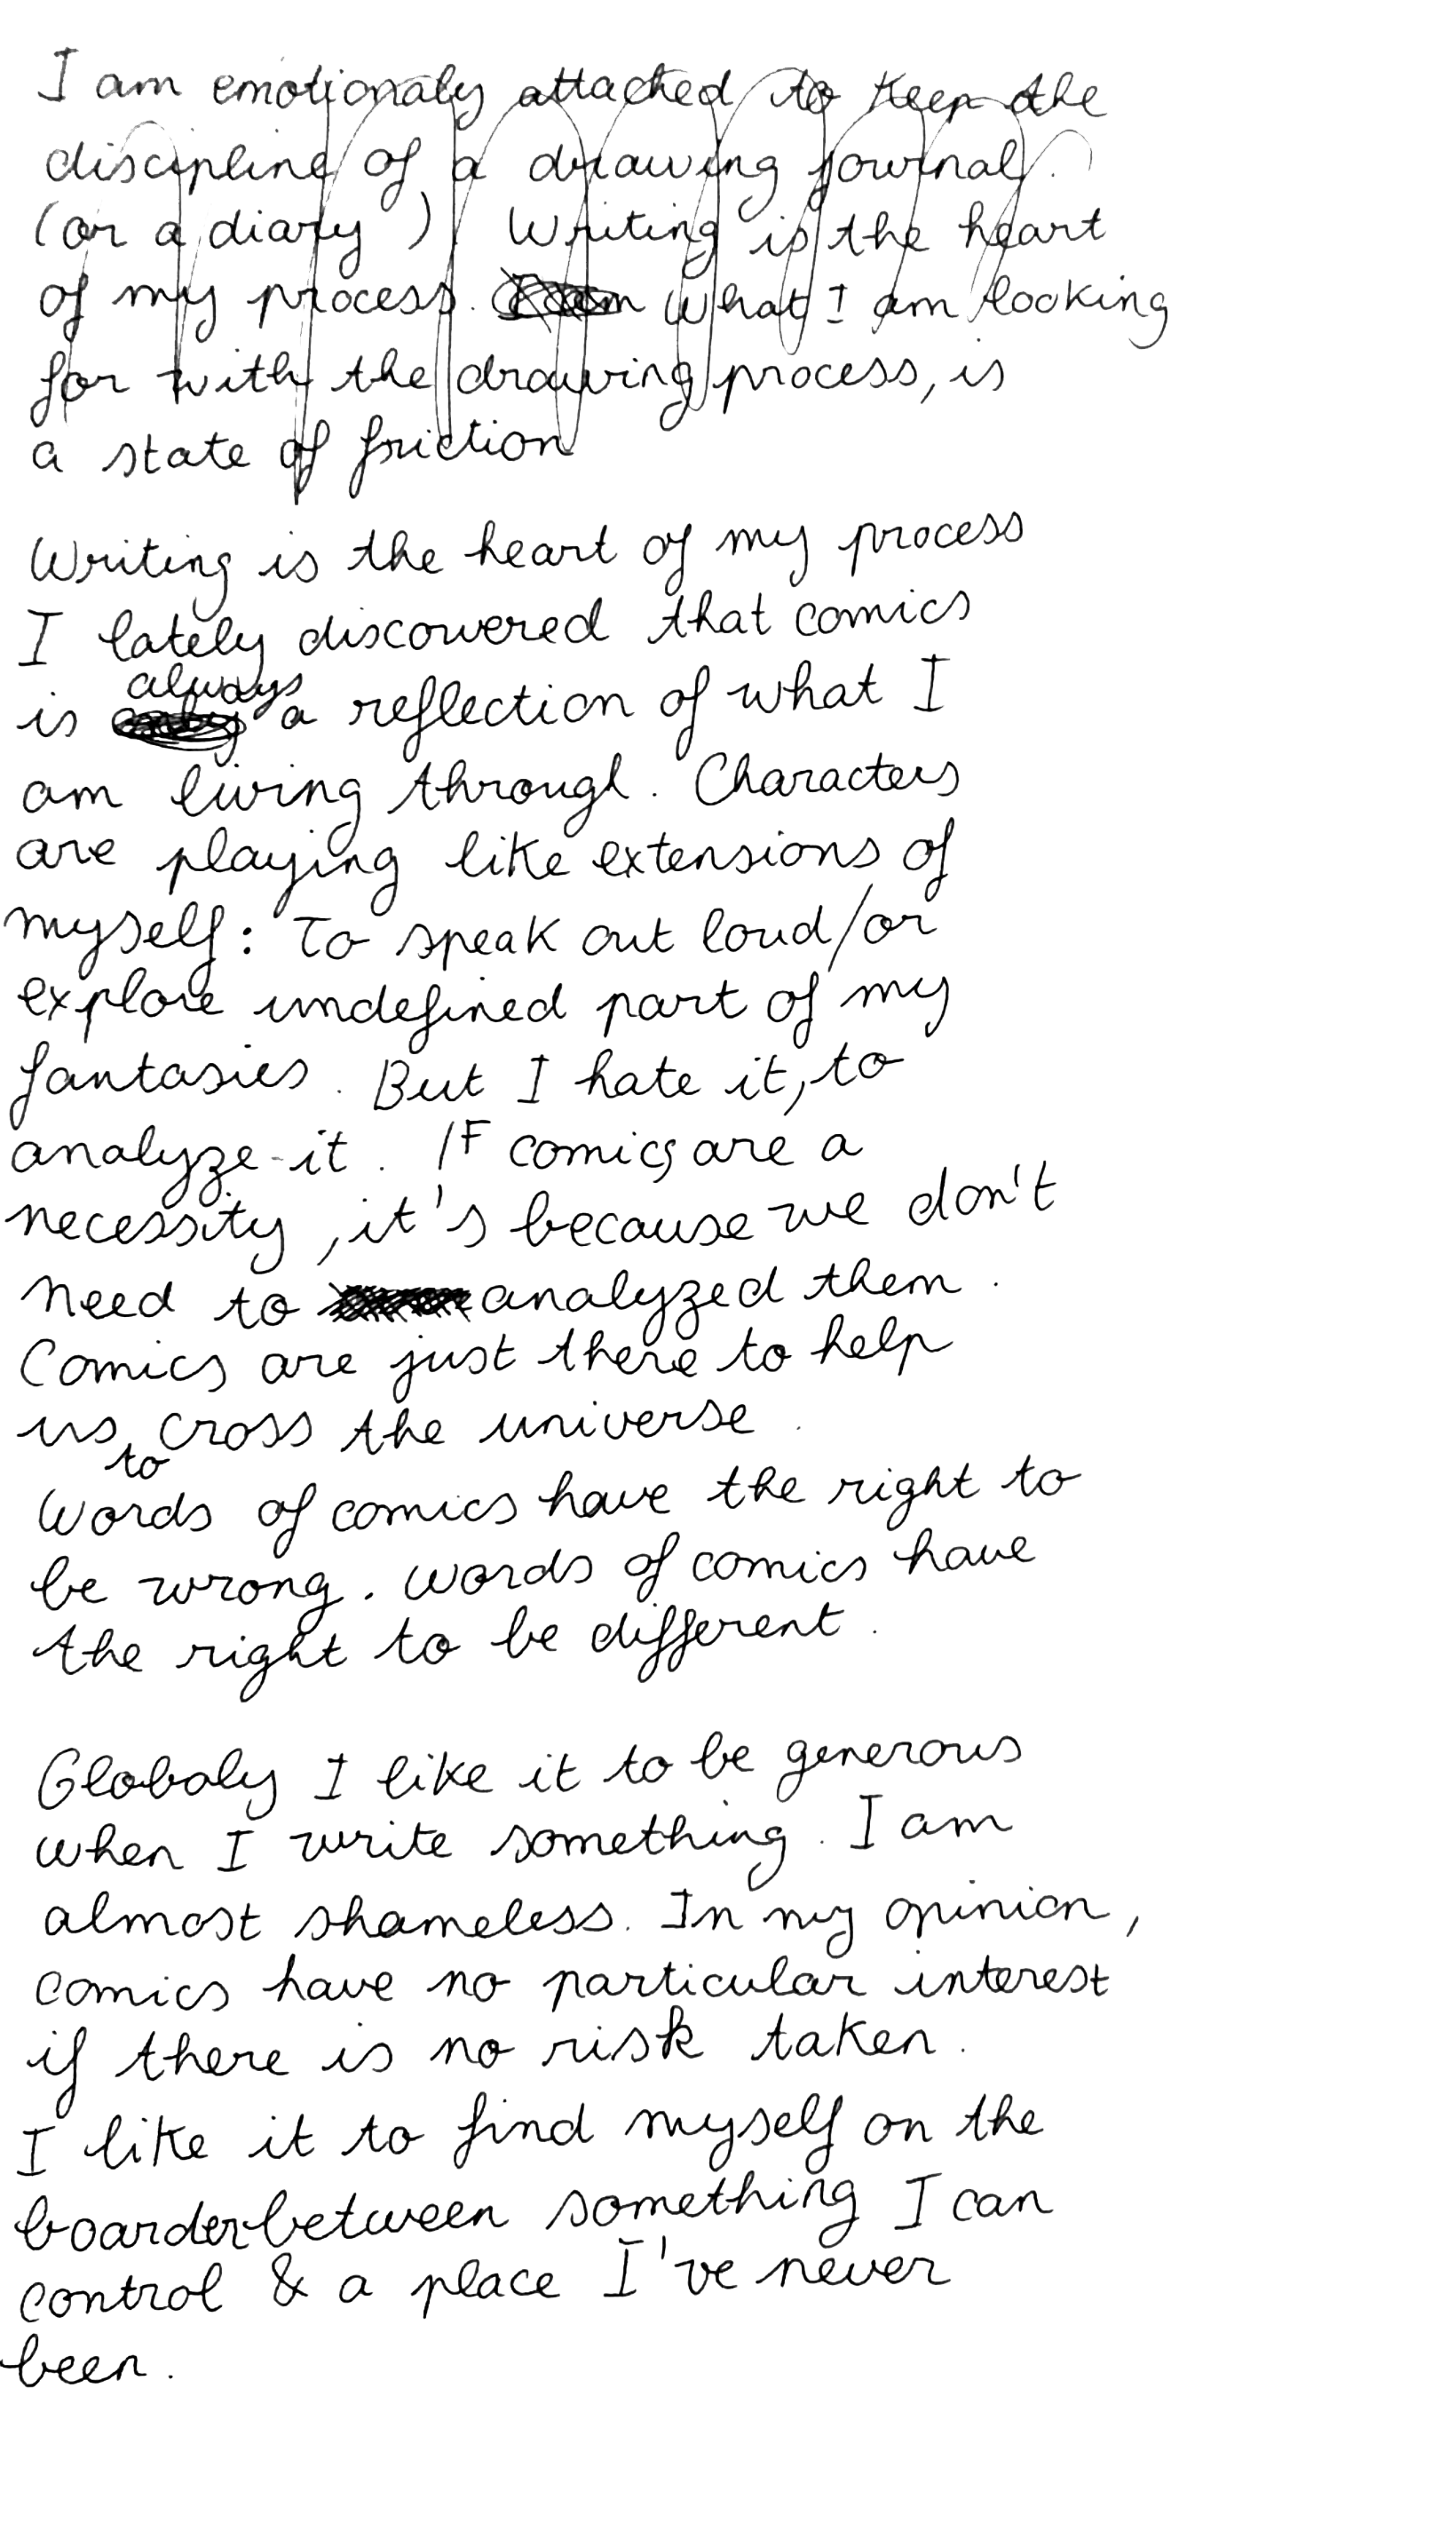 I am emotionaly attached to keep the
discipline of a drawing journal.
(or a diary ). Writing is the heart
of my process. What I am looking
for with the drawing process, is
a state of friction
Writing is the heart of my process
I lately discowered that comics
always
is a reflection of what I
am living througl. Characters
are playing like extensions of
myself: To speak out loud/or
explore undefined part of my
fantasies. But I hate it, to
analyze-it. IF comics are a
necessity, it's because we don't
need to analyzed them.
Comics are just there to help
us cross the universe.
to
Words of comics have the right to
be wrong. Words of comics have
the right to be different.
Globaly I like it to be generous
when I write something. I am
almost shameless. In my opinion,
comics have no particular interest
if there is no risk taken.
I like it to find myself on the
boarder between something I can
control & a place I've never
been.